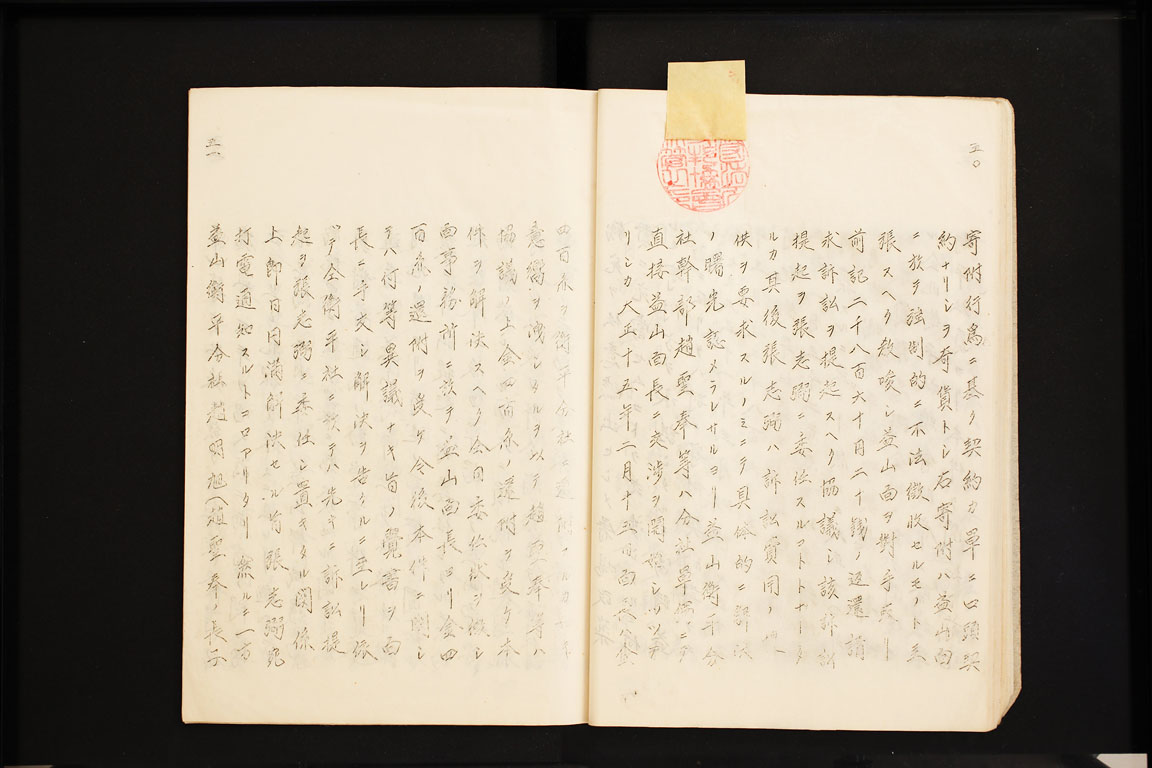 五〇
寄附行為ニ基ク契約カ單ニ口頭契
約ナリシヲ奇貨トシ右寄附ハ益山面
ニ於テ強制的ニ不法徴收セルモノト主
張スヘク教唆シ益山面ヲ對手取リ
前記二千八百六十円二十錢ノ返還請
求訴訟ヲ提起スヘク協議シ該訴訟
提起ヲ張志弼ニ委任スルコトトナリタ
ルカ其後張志弼ハ訴訟費用ノ提
供ヲ要求スルノミニテ具体的ニ解決
ノ曙光認メラレサルヨリ益山衡平分
社幹部趙雲奉等ハ分社單獨ニテ
直接益山面長ニ交渉ヲ開始シツツア
リシカ大正十五年二月十五日面長ハ金
五一
四百円ヲ衡平分社ニ還附スルカ如キ
意嚮ヲ洩シタルヲ以テ趙雲奉等ハ
協議ノ上金四百円ノ還附ヲ受ケ本
件ヲ解決スヘク会同委任状ヲ作シ
面事務所ニ於テ益山面長ヨリ金四
百円ノ還附ヲ受ケ今後本件ニ關シ
テハ何等異議ナキ旨ノ覺書ヲ面
長ニ手交シ解決ヲ告クルニ至レリ依
ツテ仝衡平社ニ於テハ先キニ訴訟提
起ヲ張志弼ニ委任シ置キタル関係
上即日円満解決セル旨張志弼宛
打電通知スルトコロアリタリ然ルニ一方
益山衡平分社趙明旭(趙雲奉ノ長子